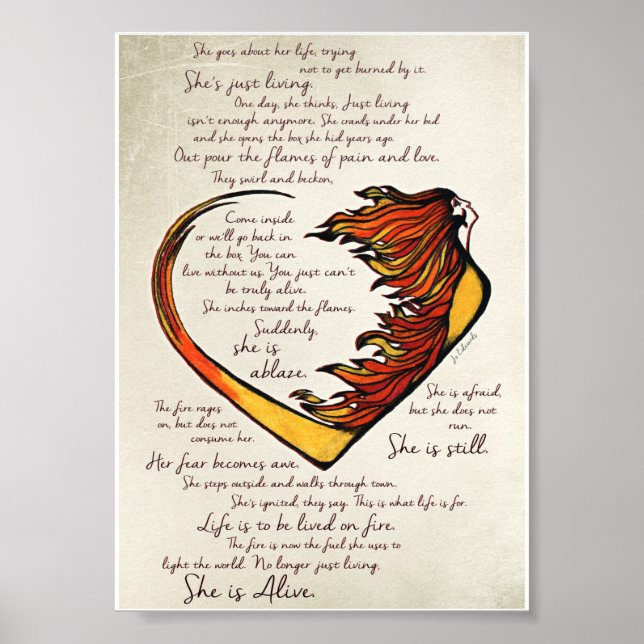 She goes about her life, trying
not to get burned by it.
She's just living.
One day, she thinks, Just living
isn't enough anymore. She crawls under her bed
and she opens the box she hid years ago.
Out pour the flames of pain and love.
They swirl and beckon,
Come inside
or we'll go back in
the box. You can
live without us. You just can't
be truly alive.
She inches toward the flames.
Suddenly,
she is
ablaze.
Jo Edwards
The fire rages
on, but does not
consume her.
She is afraid,
but she does not
run.
She is still.
Her fear becomes awe.
She steps outside and walks through town.
She's ignited, they say. This is what life is for.
Life is to be lived on fire.
The fire is now the fuel she uses to
light the world. No longer just living,
She is Alive.